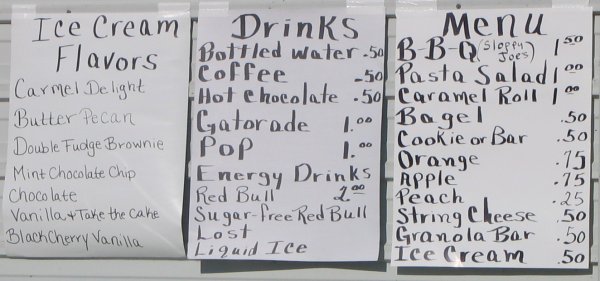 Ice Cream
Flavors
Carmel Delight
Butter Pecan
Double Fudge Brownie
Mint Chocolate Chip
Chocolate
Vanilla + Take the Cake
Black Cherry Vanilla
Drinks
Bottled Water .50
Coffee .50
Hot Chocolate .50
Gatorade 1.00
Pop 1.00
Energy Drinks
Red Bull 2.00
Sugar-free Red Bull
Lost
Liquid Ice
Menu
B-B-Q (Sloppy Joes) 1.50
Pasta Salad 1.00
Caramel Roll 1.00
Bagel .50
Cookie or Bar .50
Orange .75
Apple .75
Peach .25
String Cheese .50
Granola Bar .50
Ice Cream .50